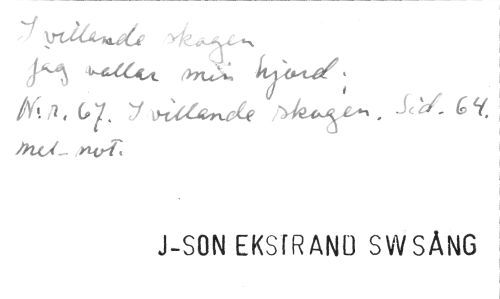 I villande skogen
jag vallar min hjord.
N:r. 67. I villande skogen. Sid. 64.
mel-not.
J-SON EKSTRAND SWSÅNG